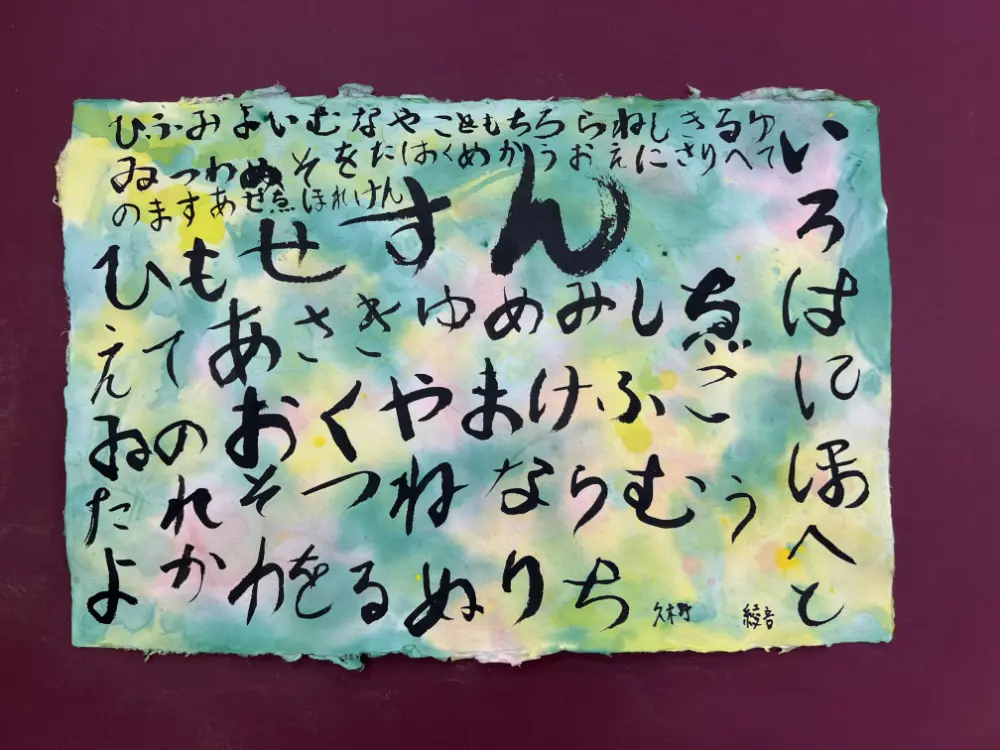 ひふみよいむなやこともちろらねしきるゆ
ゐつわぬそをたはくめかうおえにさりへて
のますあせゑほれけん
いろはにほへと
ちりぬるをわかよ
たれそつねならむう
ゐのおくやまけふこ
えてあさきゆめみしゑ
ひもせすん
久木野 綾音